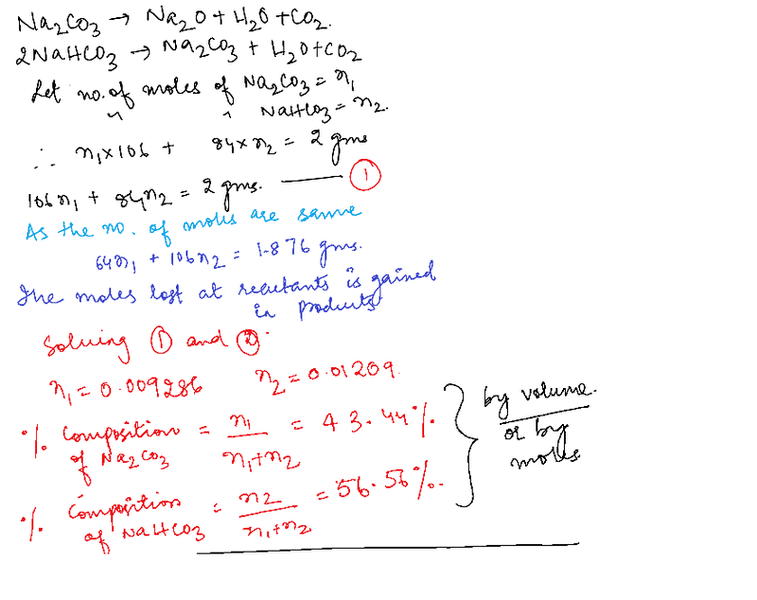 Na2CO3 → Na2O + H2O + CO2.
2NaHCO3 → Na2CO3 + H2O + CO2
Let no. of moles of Na2CO3 = n1
" " NaHCO3 = n2.
∴ n1×106 + 84×n2 = 2 gms
106n1 + 84n2 = 2 gms. ——— ①
As the no. of moles are same
64n1 + 106n2 = 1.876 gms.
The moles lost at reactants is gained
in products
Solving ① and ②.
n1 = 0.009286 n2 = 0.01209.
% Composition of Na2CO3 = n1/(n1+n2) = 43.44%.
% Composition of NaHCO3 = n2/(n1+n2) = 56.56%.
by volume.
or by
moles